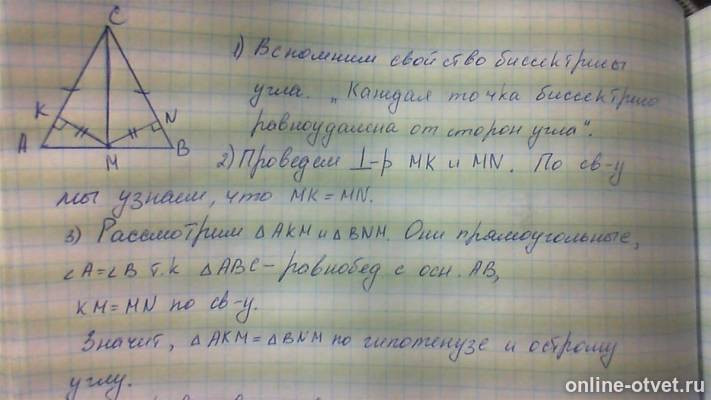 C
K
N
A
M
B
1) Вспомним свойство биссектрисы
угла. „Каждая точка биссектрис
равноудалена от сторон угла".
2) Проведем ⊥-р MK и MN. По св-у
мы узнаем, что MK = MN.
3) Рассмотрим △AKM и △BNM. Они прямоугольные,
∠A=∠B т.к △ABC - равнобед с осн. AB,
KM = MN по св-у.
Значит, △AKM = △BNM по гипотенузе и острому
углу.
online-otvet.ru